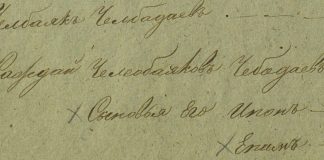 Челбаякъ Челбадаевъ
Саждай Челеобаяковъ Чебадаевъ
Сыновья Его Ипатъ
Екимъ